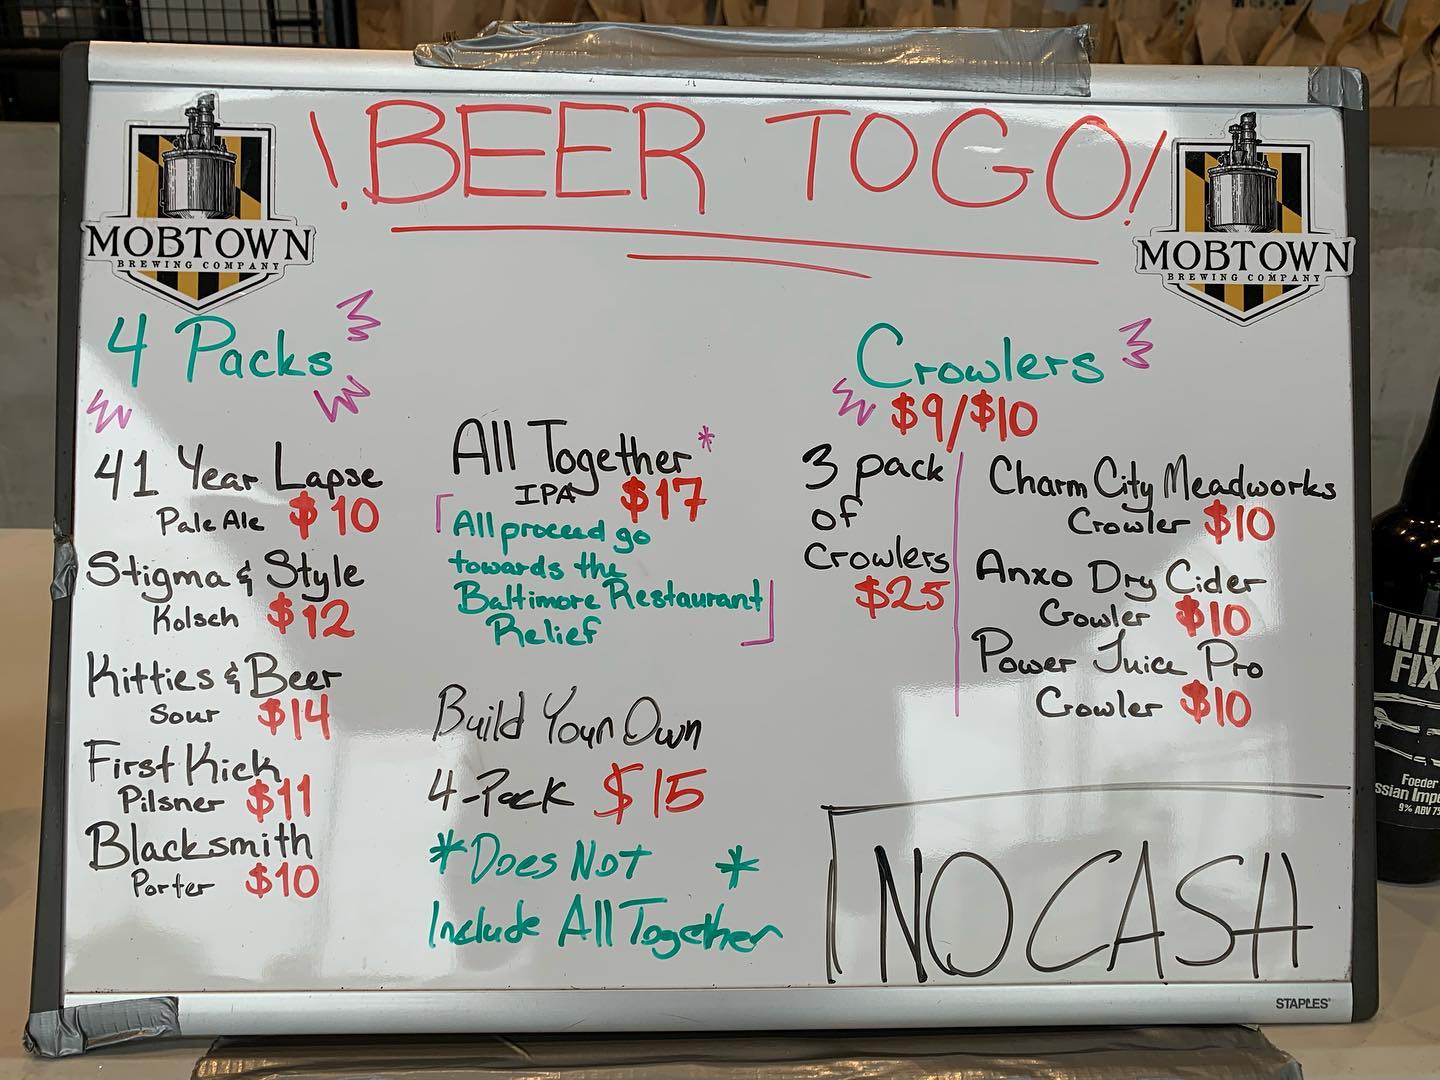 !BEER TO GO!
MOBTOWN
BREWING COMPANY
MOBTOWN
BREWING COMPANY
4 Packs
41 Year Lapse
Pale Ale $10
Stigma & Style
Kolsch $12
Kitties & Beer
Sour $14
First Kick
Pilsner $11
Blacksmith
Porter $10
All Together*
IPA $17
[All proceed go
towards the
Baltimore Restaurant
Relief]
Build Your Own
4-Pack $15
*Does Not *
Include All Together
Crowlers
$9/$10
3 pack
of
crowlers
$25
Charm City Meadworks
Crowler $10
Anxo Dry Cider
Crowler $10
Power Juice Pro
Crowler $10
NO CASH
STAPLES
FIX
Foeder
9% ABV